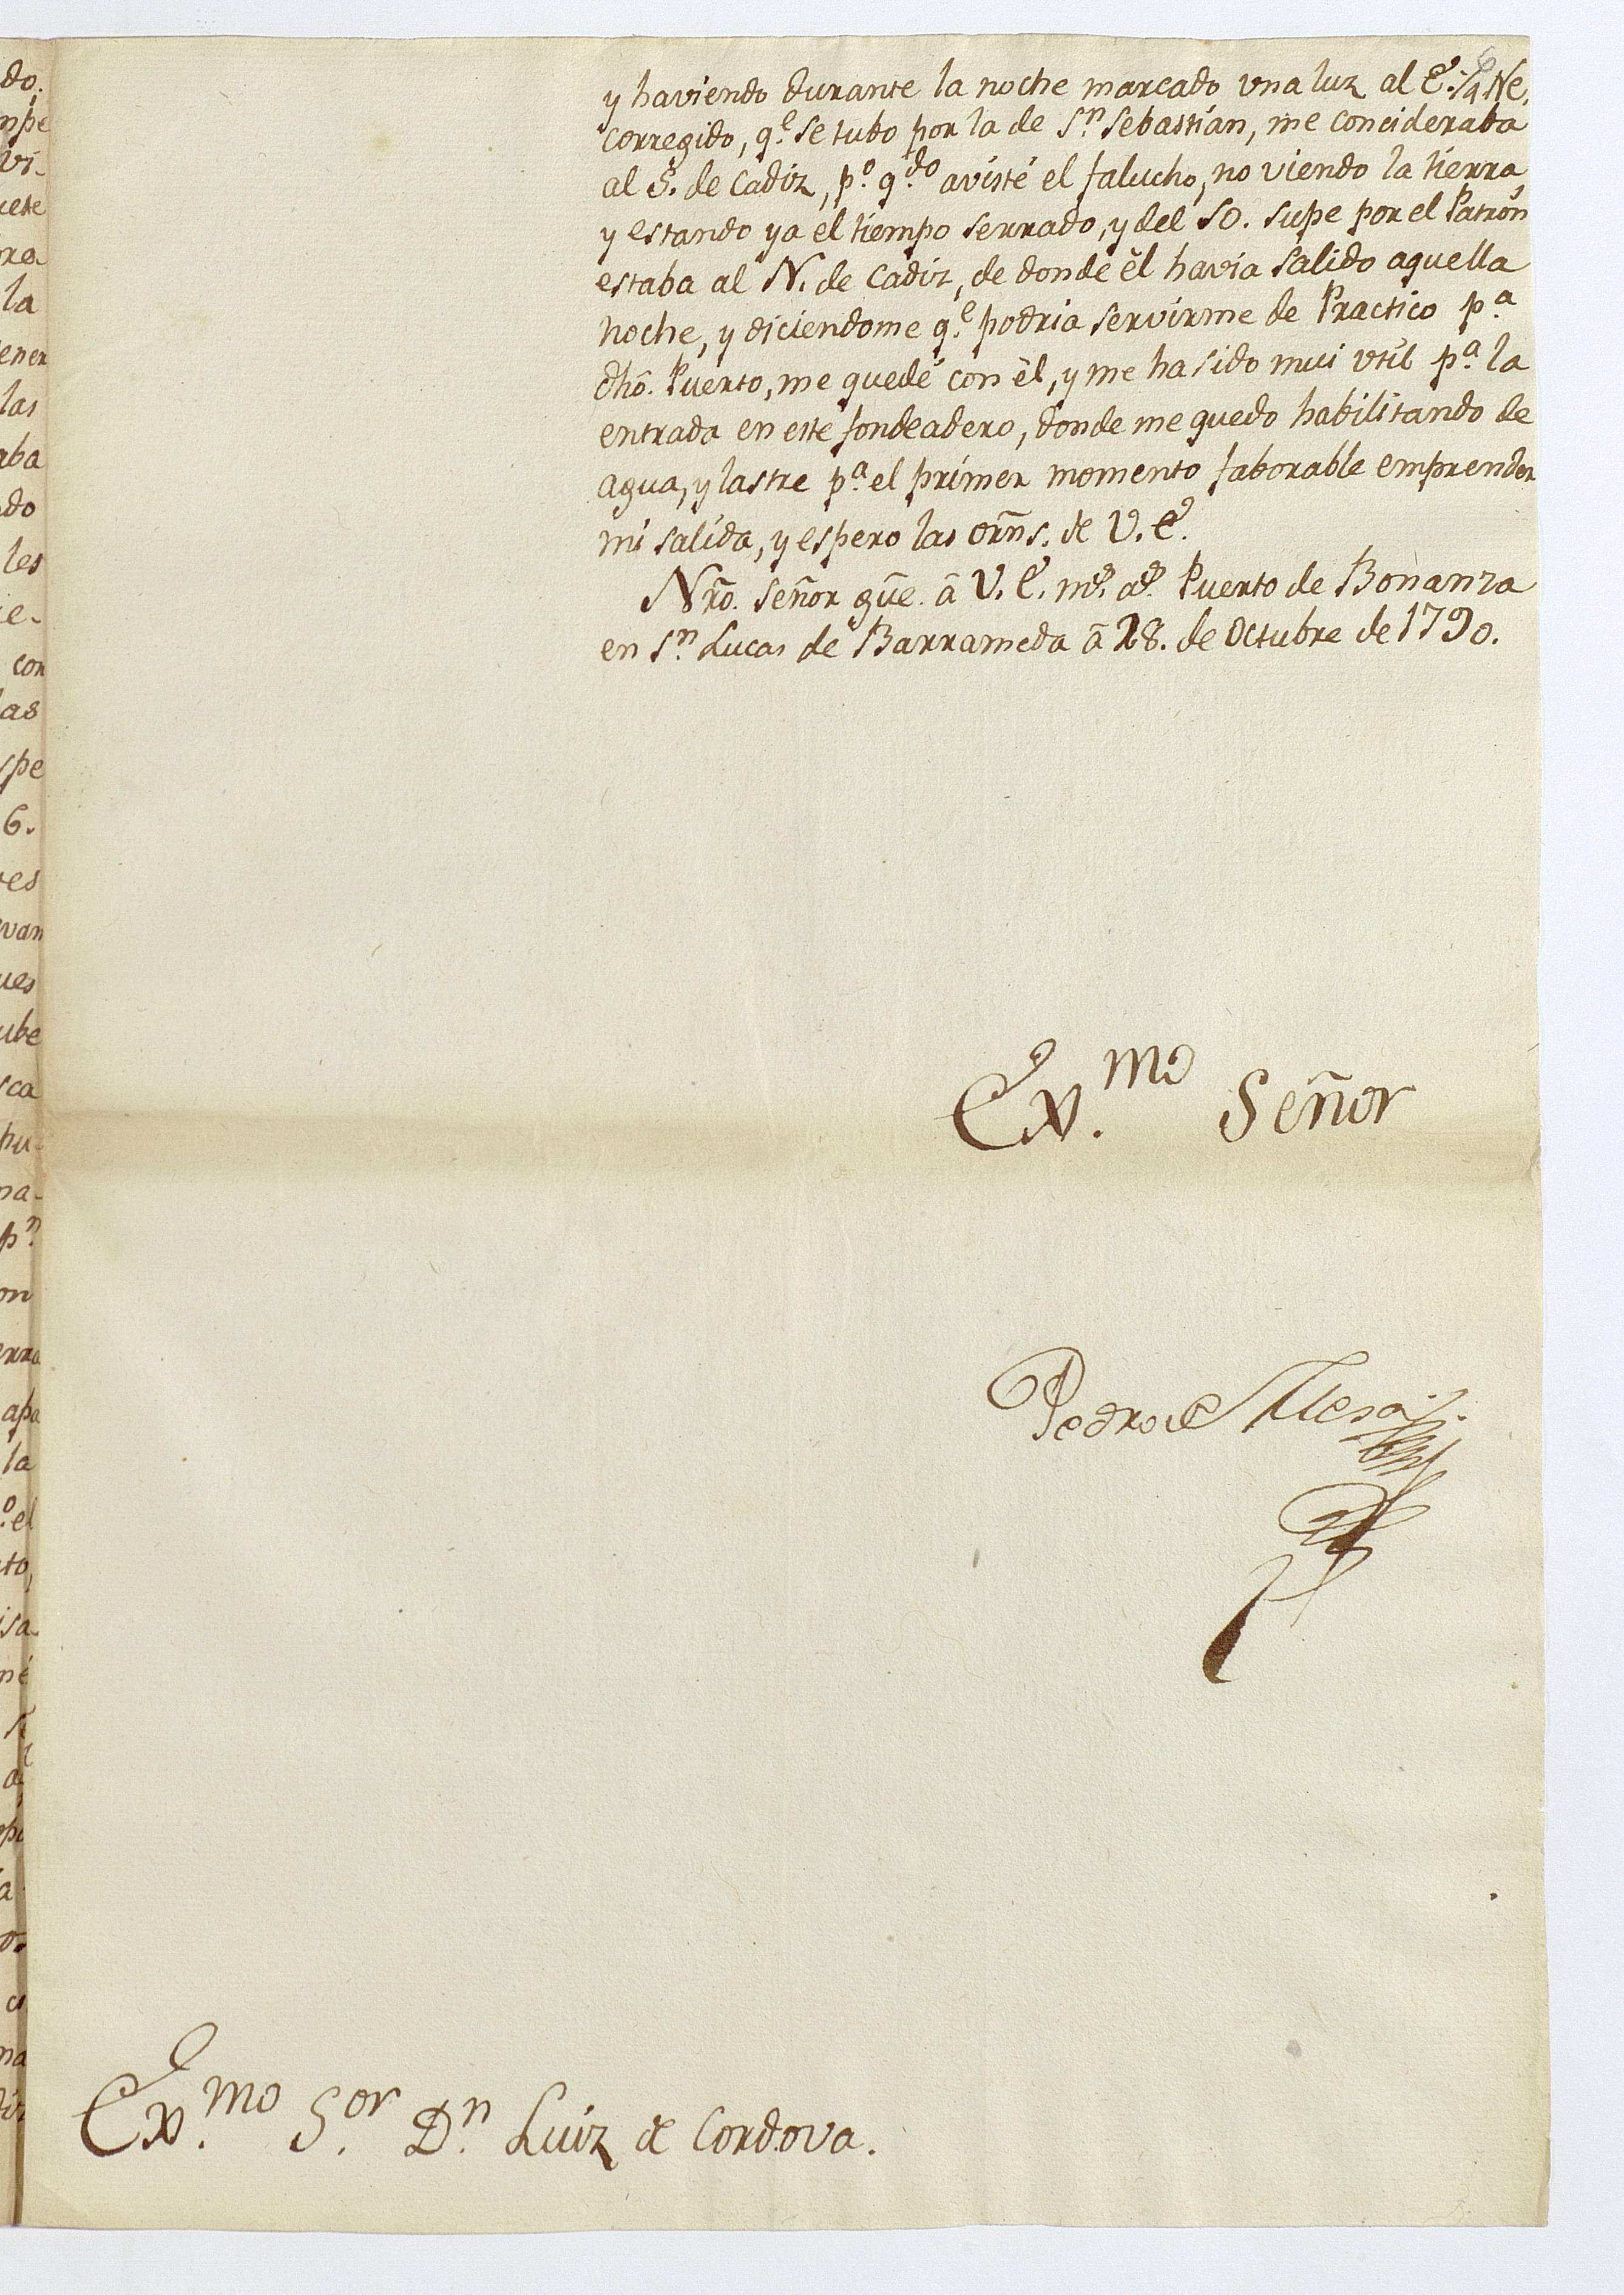 y haviendo durante la noche marcado vna luz al E. 1/4 Ne.
corregido, q.e se tubo por la de S.n Sebastian, me concideraba
al S. de Cadiz, p.o q.do avisté el falucho, no viendo la tierra,
y estando ya el tiempo serrado, y del SO. supe por el Patrón
estaba al N. de Cadiz, de donde êl havia salido aquella
noche, y diciendome q.e podria servirme de Practico p.a
dhô. Puerto, me quedé con êl, y me ha sido mui vtil p.a la
entrada en este fondeadero, donde me quedo habilitando de
agua, y lastre p.a el primer momento faborable emprender
mi salida, y espero las orñs. de V. E.
Nrô. Señor güe. â V. E. m.s a.s Puerto de Bonanza
en S.n Lucas de Barrameda â 28. de Octubre de 1790.
Ex.mo Señor
Pedro de Mesa
Ex.mo S.or D.n Luiz de Cordova.
do.
npe
vi-
uete
ra-
la
ener
las
aba
do
les
ie-
con
las
spe
6.
res
van
ues
ube
sca
pu-
na-
p.n
on
erra
apa
la
.o el
to,
isa-
né